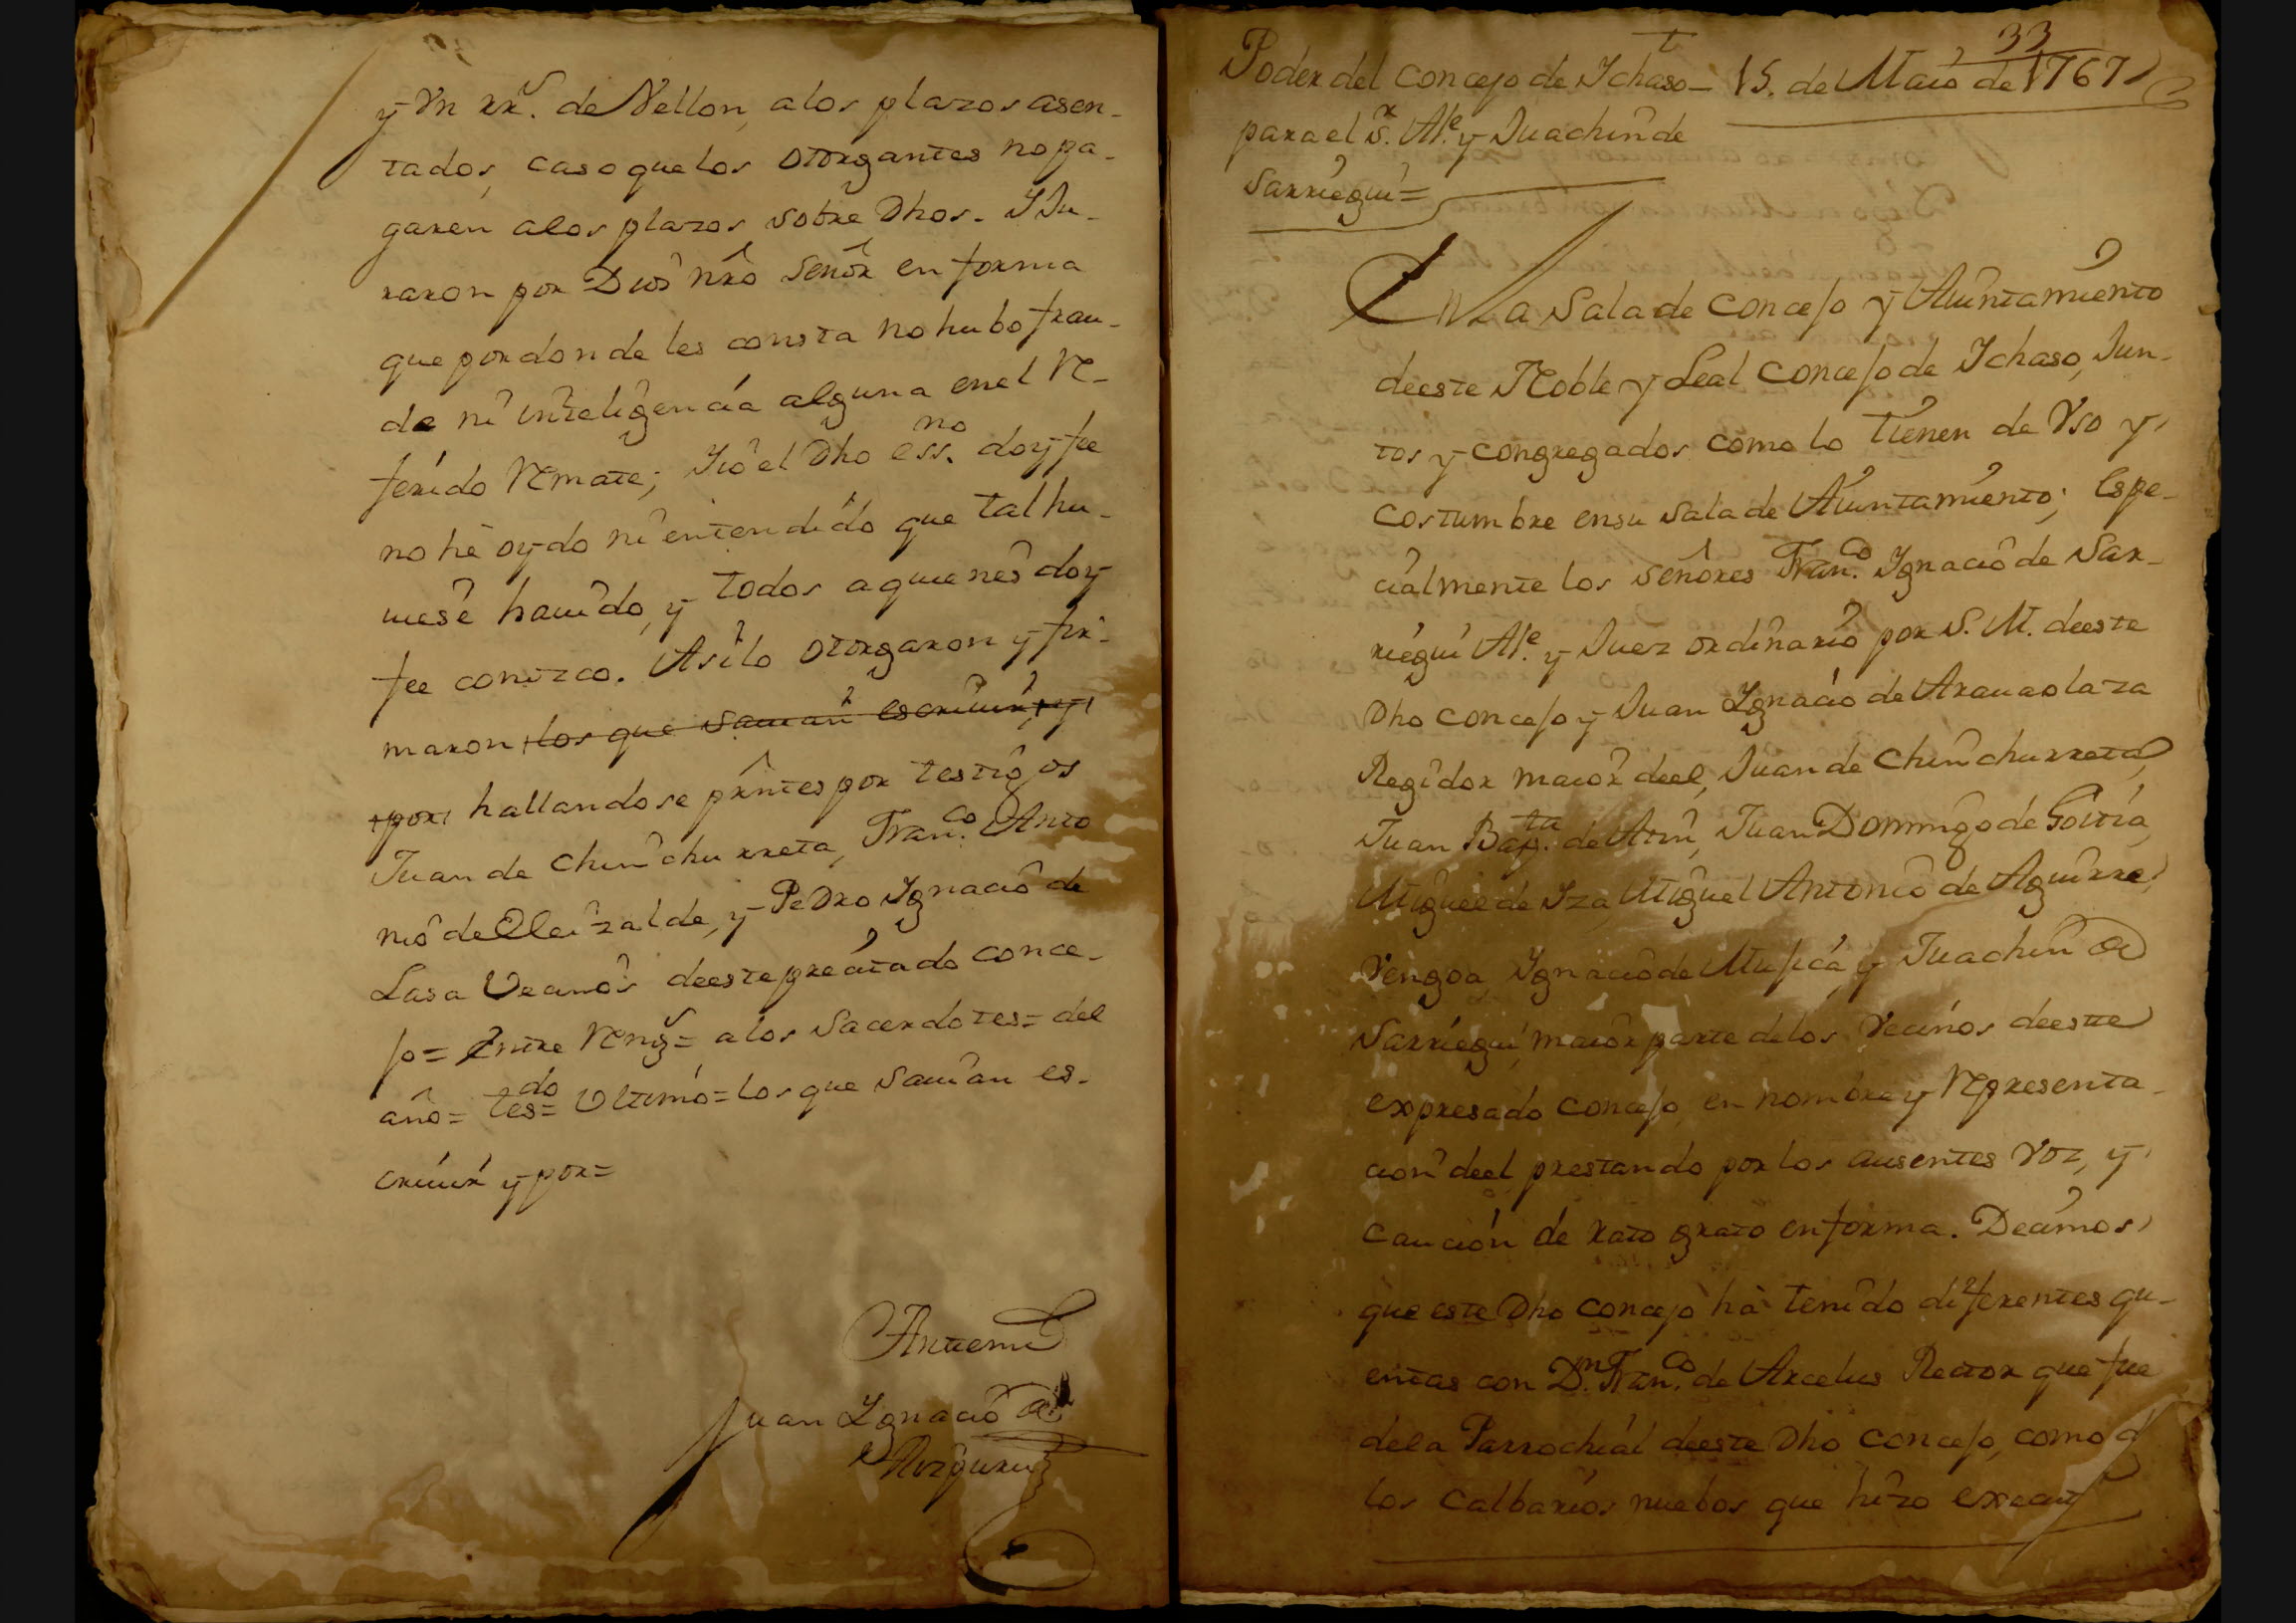 y Vn rr.s de Vellon, alos plazos asen-
tados, caso quelos otorgantes nopa-
garen alos plazos sobre Dhos. YJu-
raron por Dios nrô Señor en forma
que pordonde les consta nohubo frau-
de ni inteligencia alguna enel Re-
ferido Remate; Yio el Dho ess.no doyfee
no hè oydo ni entendido que tal hu-
uiese hauido, y todos aquienes doy
fee conozco. Asilo otorgaron y fir-
maron, los que sauian escriuir, y
por hallandose prêntes por testigos
Juan de Chinchurreta, Fran.co Anto
nio de Eleizalde, y Pedro Ignacio de
Lasa Vecinos deeste precitado conce-
jo = Entre Reng.s = alos Sacerdotes = del
año = tes.do = Vltimo = los que Sauian es-
criuir y por =
Antemi
Juan Ignacio de
33
Poder del concejo de Ichaso - 15. de Maio de 1767
para el S.r Al.e y Juachin de
Sarriegui =
En La Sala de Concejo y Aiuntamiento
deeste Noble y Leal Concejo de Ichaso, Jun-
tos y congregados como lo tienen de Vso y
costumbre ensu sala de Aiuntamiento; Espe-
cialmente los señores Fran.co Ignacio de Sar-
riegui Al.e y Juez ordinario por S. M. deeste
Dho concejo y Juan Ignacio de Araucolaza
Regidor maior deel, Juan de Chinchurreta,
Juan Bap.ta de Atin, Juan Domingo de Goitia,
Miguel de Iza, Miguel Antonio de Aguirre,
Vengoa, Ignacio de Mujica, y Juachin de
Sarriegui, maior parte delos Vecinos deeste
expresado concejo, en nombre y Representa-
cion deel prestando por los ausentes voz, y
caucion de rato grato enforma. Decimos
que este Dho concejo hà tenido diferentes qu-
entas con D.n Fran.co de Arcelus Rector que fue
dela Parrochial deeste Dho Concejo, como d
los Calbarios nuebos que hizo execut